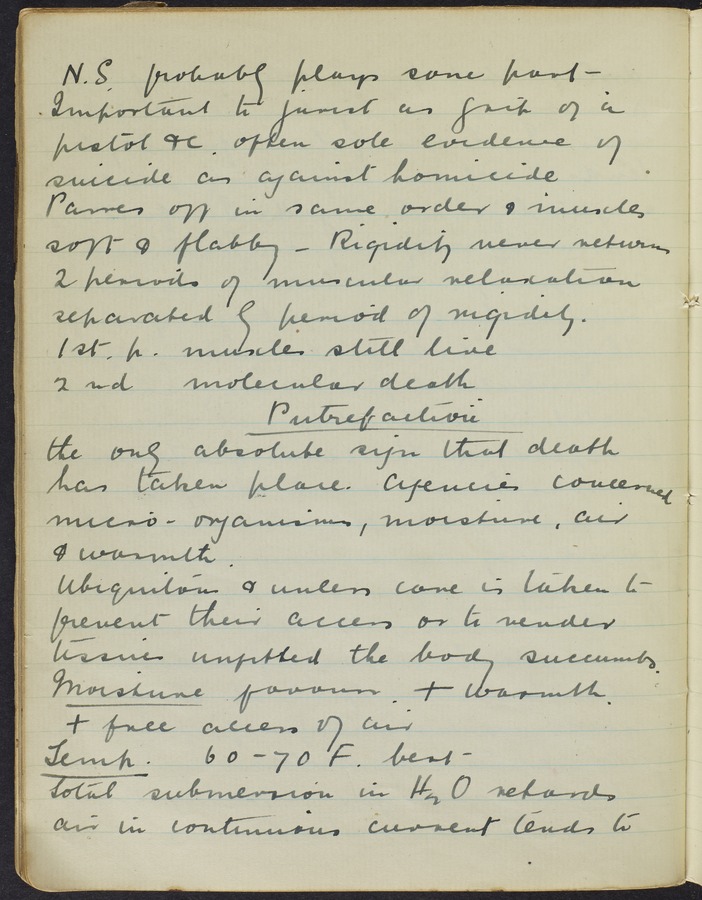 N.S. probably plays some part -
Important to jurist as grip of a
pistol &c. often sole evidence of
suicide as against homicide
Passes off in same order & muscles
soft & flabby - Rigidity never returns
2 periods of muscular relaxation
separated by period of rigidity.
1st. p. muscles still live
2nd molecular death
Putrefaction
the only absolute sign that death
has taken place. Agencies concerned
micro-organisms, moisture, air
& warmth.
Ubiquitous & unless care is taken to
prevent their access or to render
tissues unfitted the body succumbs.
Moisture favours + warmth.
+ free access of air
Temp. 60-70 F. best -
Total submersion in H2O retards
air in continuous current tends to